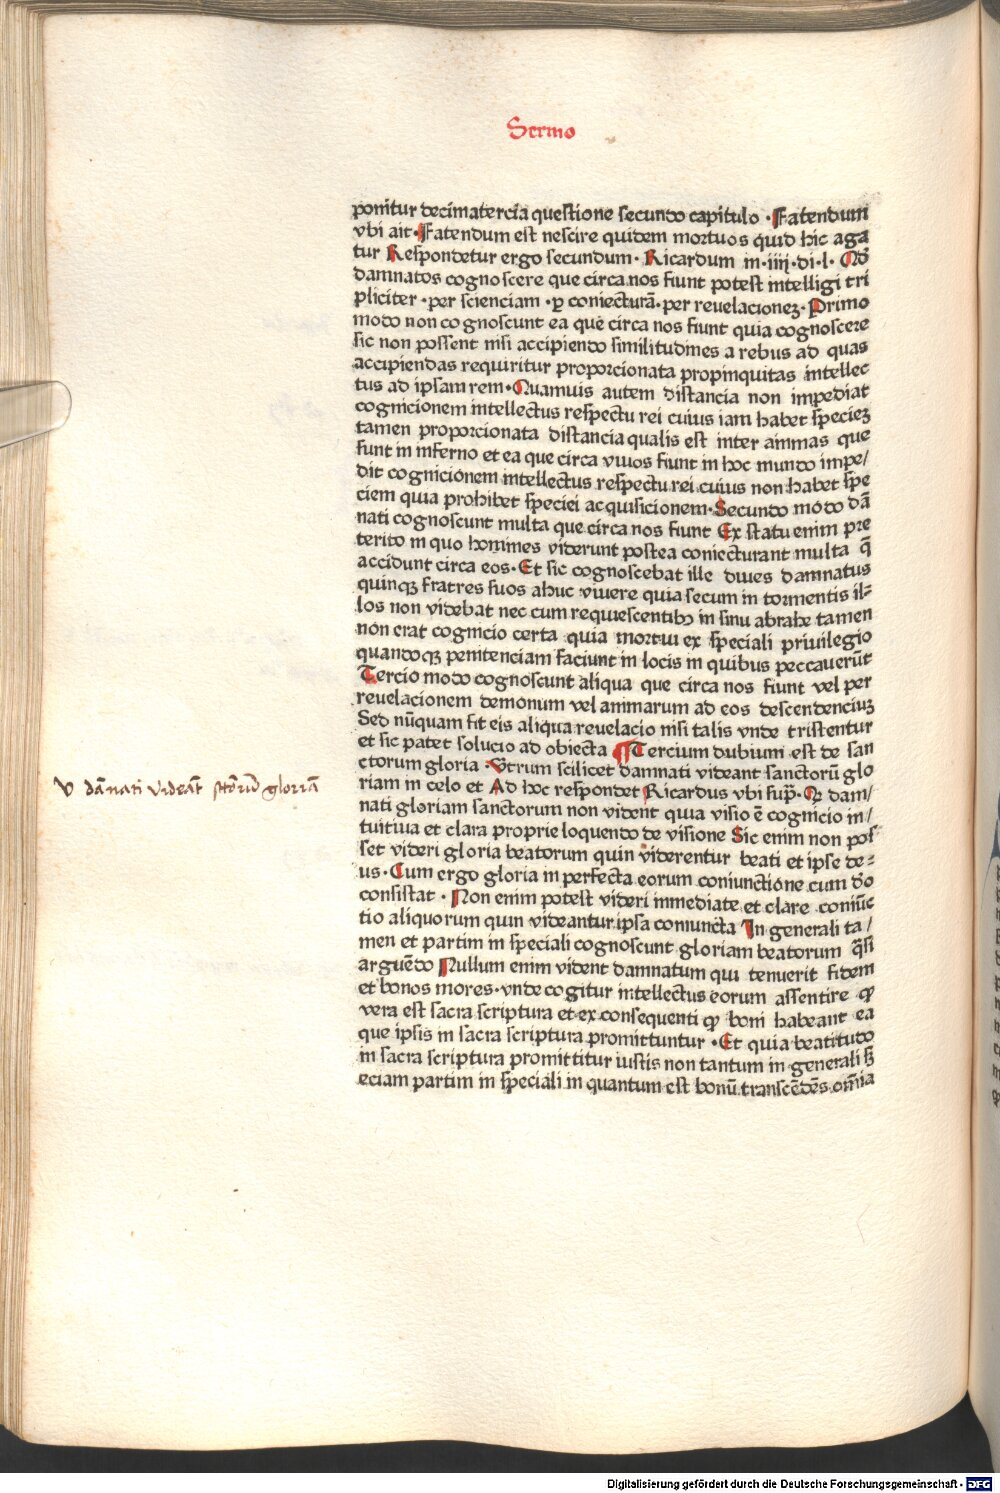 Sermo
ponitur decimatercia questione secundo capitulo · Fatendum
vbi ait · Fatendum est nescire quidem mortuos quid hic aga
tur Respondetur ergo secundum · Ricardum in · iiij · di · l · Qd̕
damnatos cognoscere que circa nos fiunt potest intelligi tri
pliciter · per scienciam · ꝑ coniecturā · per reuelacionez · Primo
modo non cognoscunt ea que circa nos fiunt quia cognoscere
sic non possent nisi accipiendo similitudines a rebus ad quas
accipiendas requiritur proporcionata propinquitas intellec
tus ad ipsam rem · Quamuis autem distancia non impediat
cognicionem intellectus respectu rei cuius iam habet speciez
tamen proporcionata distancia qualis est inter animas que
sunt in inferno et ea que circa viuos fiunt in hoc mundo impe/
dit cognicionem intellectus respectu rei cuius non habet spe
ciem quia prohibet speciei acquisicionem · Secundo modo dā
nati cognoscunt multa que circa nos fiunt Ex statu enim pre
terito in quo homines viderunt postea coniecturant multa q̄
accidunt circa eos · Et sic cognoscebat ille diues damnatus
quinqꝫ fratres suos ahuc viuere quia secum in tormentis il⸗
los non videbat nec cum requiescentibꝫ in sinu abrahe tamen
non erat cognicio certa quia mortui ex speciali priuilegio
quandoqꝫ penitenciam faciunt in locis in quibus peccauerūt
Tercio modo cognoscunt aliqua que circa nos fiunt vel per
reuelacionem demonum vel animarum ad eos descendenciuꝫ
Sed nūquam fit eis aliqua reuelacio nisi talis vnde tristentur
et sic patet solucio ad obiecta ¶ Tercium dubium est de san
ctorum gloria · Vtrum scilicet damnati videant sanctorū glo
riam in celo et Ad hoc respondet Ricardus vbi sup̄ · Qꝫ dam/
nati gloriam sanctorum non vident quia visio ē cognicio in/
tuitiua et clara proprie loquendo de visione Sic enim non pos
set videri gloria beatorum quin viderentur beati et ipse de⸗
us · Cum ergo gloria in perfecta eorum coniunctione cum dō
consistat · Non enim potest videri inmediate et clare coniūc
tio aliquorum quin videantur ipsa coniuncta In generali ta/
men et partim in speciali cognoscunt gloriam beatorum q̄si
arguēdo Nullum enim vident damnatum qui tenuerit fidem
et bonos mores · vnde cogitur intellectus eorum assentire ꝙ
vera est sacra scriptura et ex consequenti ꝙ boni habeant ea
que ipsis in sacra scriptura promittuntur · Et quia beatitudo
in sacra scriptura promittitur iustis non tantum in generali sꝫ
eciam partim in speciali in quantum est bonū transcēdēs om̄ia
V dānati videāt sctōrū gloriā
Digitalisierung gefördert durch die Deutsche Forschungsgemeinschaft - DFG